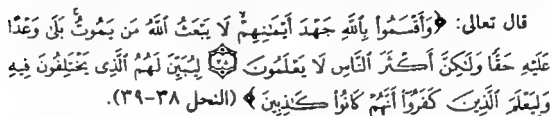 قال تعالى: ﴿وَأَقْسَمُوا۟ بِٱللَّهِ جَهْدَ أَيْمَـٰنِهِمْ لَا يَبْعَثُ ٱللَّهُ مَن يَمُوتُ بَلَىٰ وَعْدًا
عَلَيْهِ حَقًّا وَلَـٰكِنَّ أَكْثَرَ ٱلنَّاسِ لَا يَعْلَمُونَ ۝٣٨ لِيُبَيِّنَ لَهُمُ ٱلَّذِى يَخْتَلِفُونَ فِيهِ
وَلِيَعْلَمَ ٱلَّذِينَ كَفَرُوٓا۟ أَنَّهُمْ كَانُوا۟ كَـٰذِبِينَ﴾ (النحل ٣٨-٣٩).